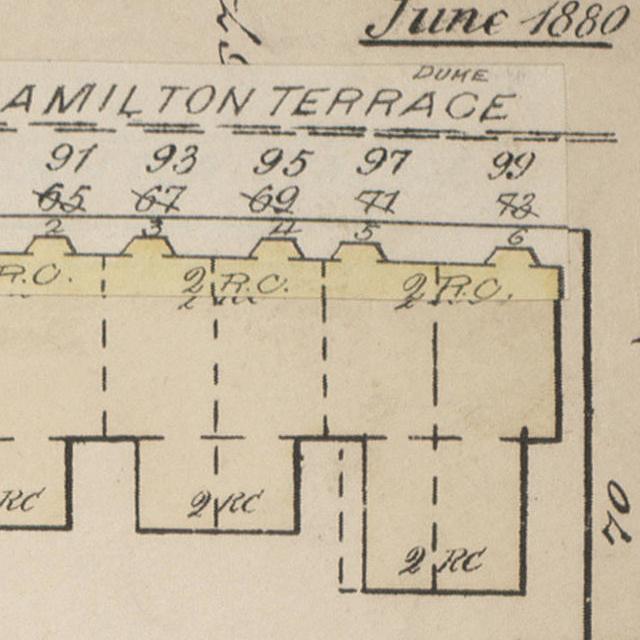 June 1880
DUME
AMILTON TERRACE
91 93 95 97 99
65 67 69 71 73
2 3 4 5 6
R.C. 2 R.C. 2 R.C.
RC 2 RC
70
2 RC